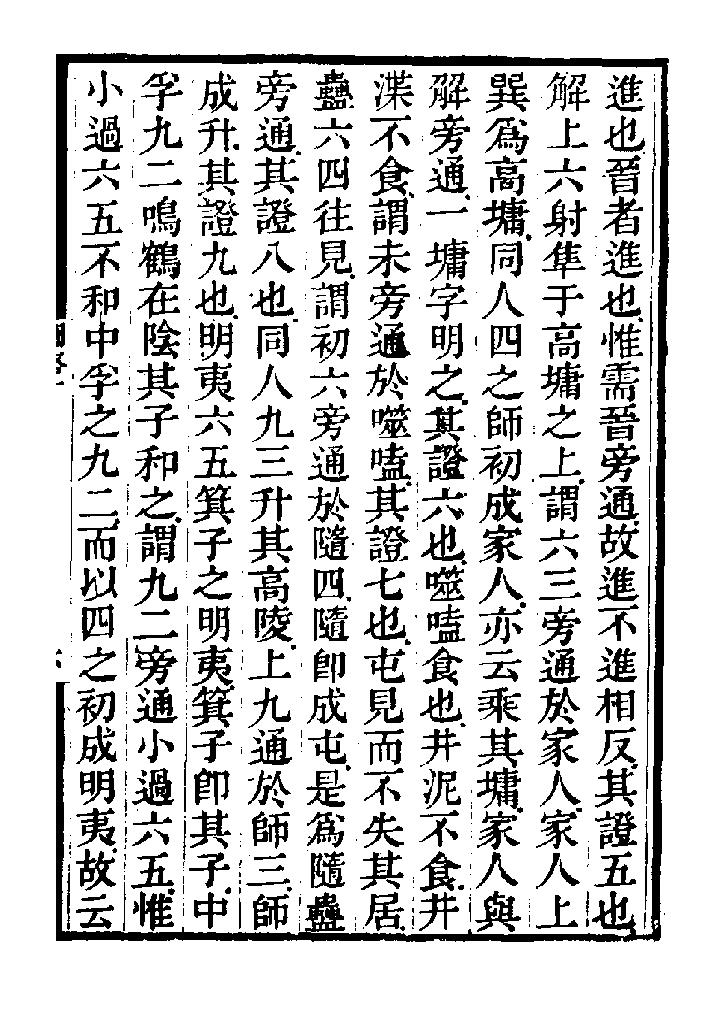 進也晉者進也惟需晉旁通故進不進相反其證五也
解上六射隼于高墉之上謂六三旁通於家人家人上
巽爲高墉同人四之師初成家人亦云乘其墉家人與
解旁通一墉字明之其證六也噬嗑食也井泥不食井
渫不食謂未旁通於噬嗑其證七也屯見而不失其居
蠱六四往見謂初六旁通於隨四隨卽成屯是爲隨蠱
旁通其證八也同人九三升其高陵上九通於師三師
成升其證九也明夷六五箕子之明夷箕子卽其子中
孚九二鳴鶴在陰其子和之謂九二旁通小過六五惟
小過六五不和中孚之九二而以四之初成明夷故云